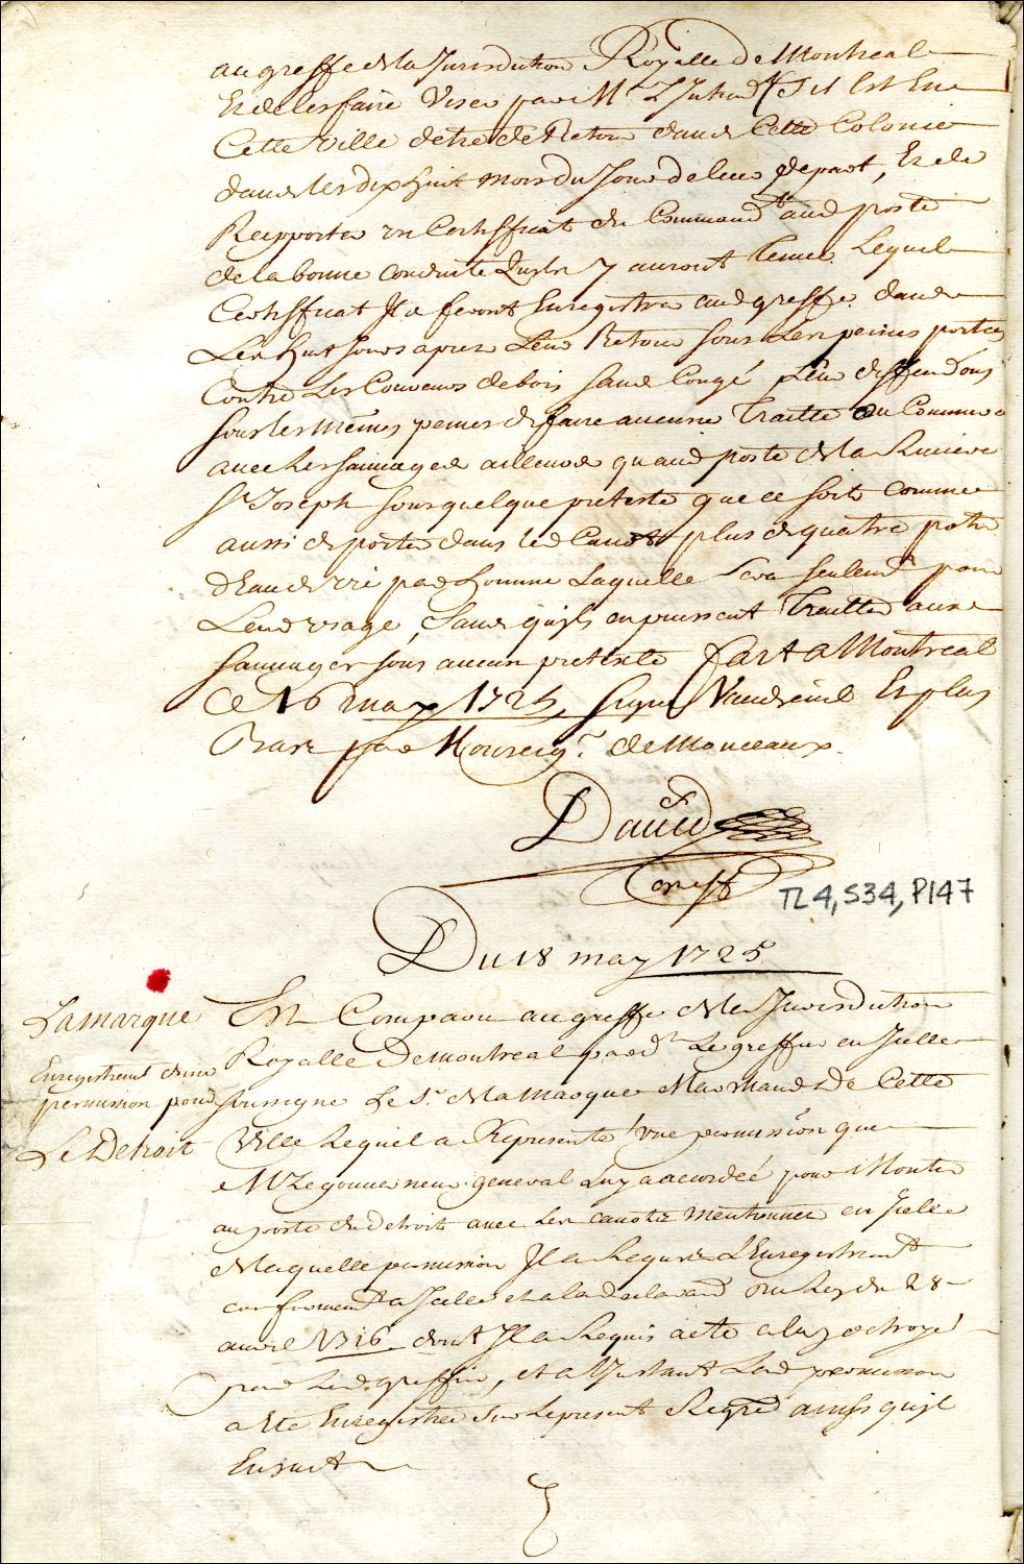 au greffe de la Jurisdiction Royalle de Montreal
Et de les faire Viser par M L Intendt S'il Est En
Cette Ville detre de Retour dans Cette Colonie
dans les dix huit mois du Jour de leur depart, Et de
Rapporter un Certifficat du Commandt aud poste
de la bonne conduite quils y auront tenue Lequel
Certifficat Ils feront Enregistrer aud greffe dans
Les huit Jours apres Leur Retour sous Les peines portées
Contre Les Coureurs de bois sans Congé Leur deffendons
sous les mêmes peines de faire aucune Traitte ou Commerce
avec Les sauvages ailleurs quaud poste de la Riviere
St Joseph sous quelque pretexte que ce soit comme
aussi de porter dans led Canot plus de quatre pots
d'Eau de vie par homme Laquelle sera seulemt pour
Leur usage, sans quils en puissent Traitter aux
sauvages sous aucun pretexte fait a Montreal
Ce 16 may 1725, signé Vaudreuil Et plus
Bas par Monseigr. de Monceaux.
David
Greff
TL4, S34, P147
Du 18 may 1725
Lamarque
Enregistremt dune
permission pour
Le Detroit
Est Comparu au greffe de la Jurisdiction
Royalle de Montreal pard Le greffier en Jcelle
soussigné Le Sr. de Lamarque Marchand de Cette
Ville Lequel a Representé une permission que
M Le gouverneur general Luy a accordéé pour Monter
au poste du detroit avec Les canots mentionnez en Jcelle
de laquelle permission Jl a Requis L'Enregistremt
conformemt a Jcelle et a la declaraon du Roy du 28
avril 1716 dont Jl a Requis acte a luy octroyé
par Led. greffier, et a l'Jnstant Lad permission
a Eté Enregistrée sur Le present Regre ainsy quil
Ensuit